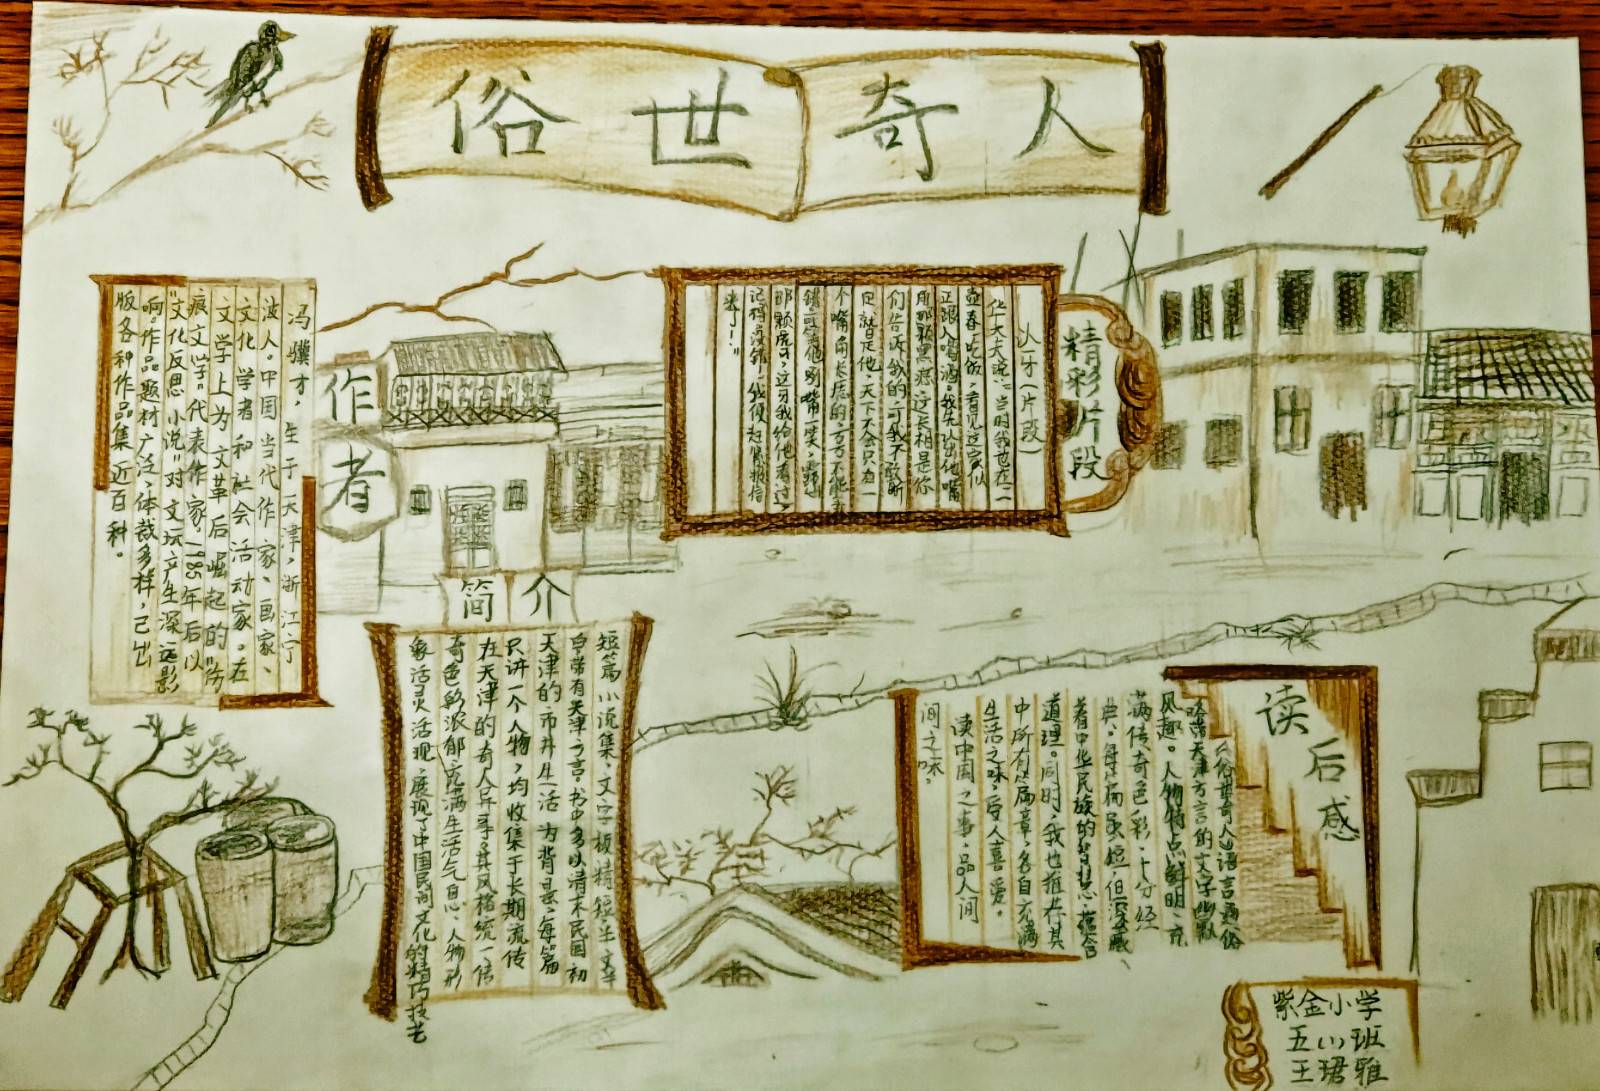 俗世奇人
作者
冯骥才，生于天津，浙江宁
波人。中国当代作家、画家、
文化学者和社会活动家。在
文学上为文革后崛起的"伤
痕文学"代表作家，1985年后以
"文化反思小说"对文坛产生深远影
响。作品题材广泛、体裁多样，已出
版各种作品集近百种。
精彩片段
认牙（片段）
华大夫说："当时我也在一
壶春吃饭，看见这家伙
正跟人喝酒。我先认出他嘴
角那颗黑痣，这长相是你
们告诉我的，可我不敢断
定就是他，天下不会只有一
个嘴角长痣的，万万不能
错！可等他咧嘴一笑，露出
那颗虎牙，这牙我给他看过，
记得没错，我便赶紧报信
来了！"
简介
短篇小说集。文字极精短，半文半
白，带有天津方言。书中多以清末民国初
天津的市井生活为背景，每篇
只讲一个人物，均收集于长期流传
在天津的奇人异事。其风格统一、传
奇色彩浓郁、充满生活气息、人物形
象活灵活现，展现了中国民间文化的精巧技艺
读后感
《俗世奇人》语言通俗
略带天津方言的文字幽默
风趣。人物特点鲜明，充
满传奇色彩，十分经
典。每篇虽短，但深藏
着中华民族的智慧，蕴含
道理。同时，我也推荐其
中所有篇章，各自充满
生活之味，受人喜爱。
读中国之事，品人间
间之味。
紫金小学
五（1）班
王珺雅